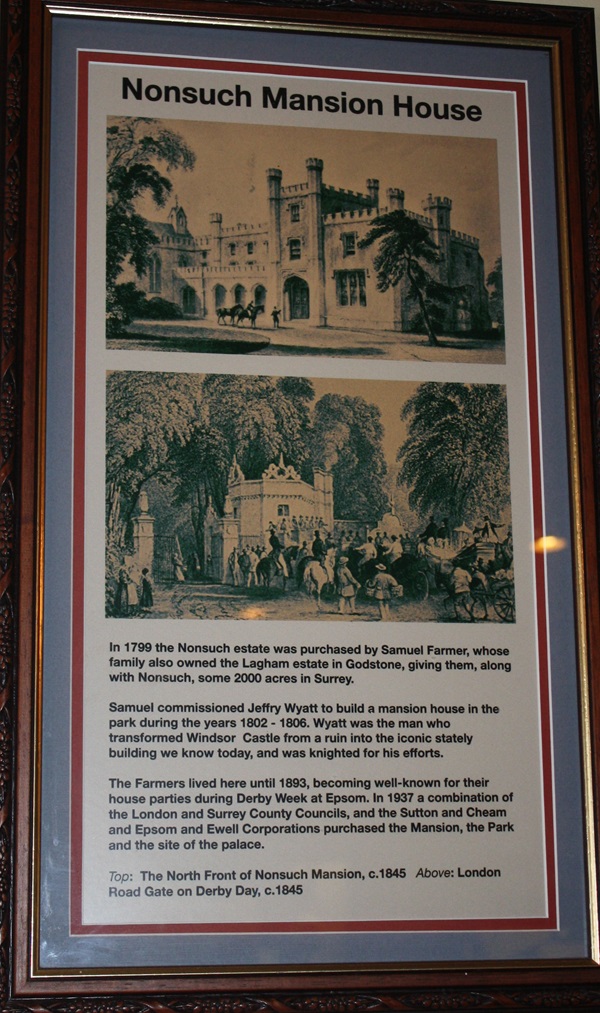 Nonsuch Mansion House
In 1799 the Nonsuch estate was purchased by Samuel Farmer, whose
family also owned the Lagham estate in Godstone, giving them, along
with Nonsuch, some 2000 acres in Surrey.
Samuel commissioned Jeffry Wyatt to build a mansion house in the
park during the years 1802 - 1806. Wyatt was the man who
transformed Windsor Castle from a ruin into the iconic stately
building we know today, and was knighted for his efforts.
The Farmers lived here until 1893, becoming well-known for their
house parties during Derby Week at Epsom. In 1937 a combination of
the London and Surrey County Councils, and the Sutton and Cheam
and Epsom and Ewell Corporations purchased the Mansion, the Park
and the site of the palace.
Top: The North Front of Nonsuch Mansion, c.1845 Above: London
Road Gate on Derby Day, c.1845